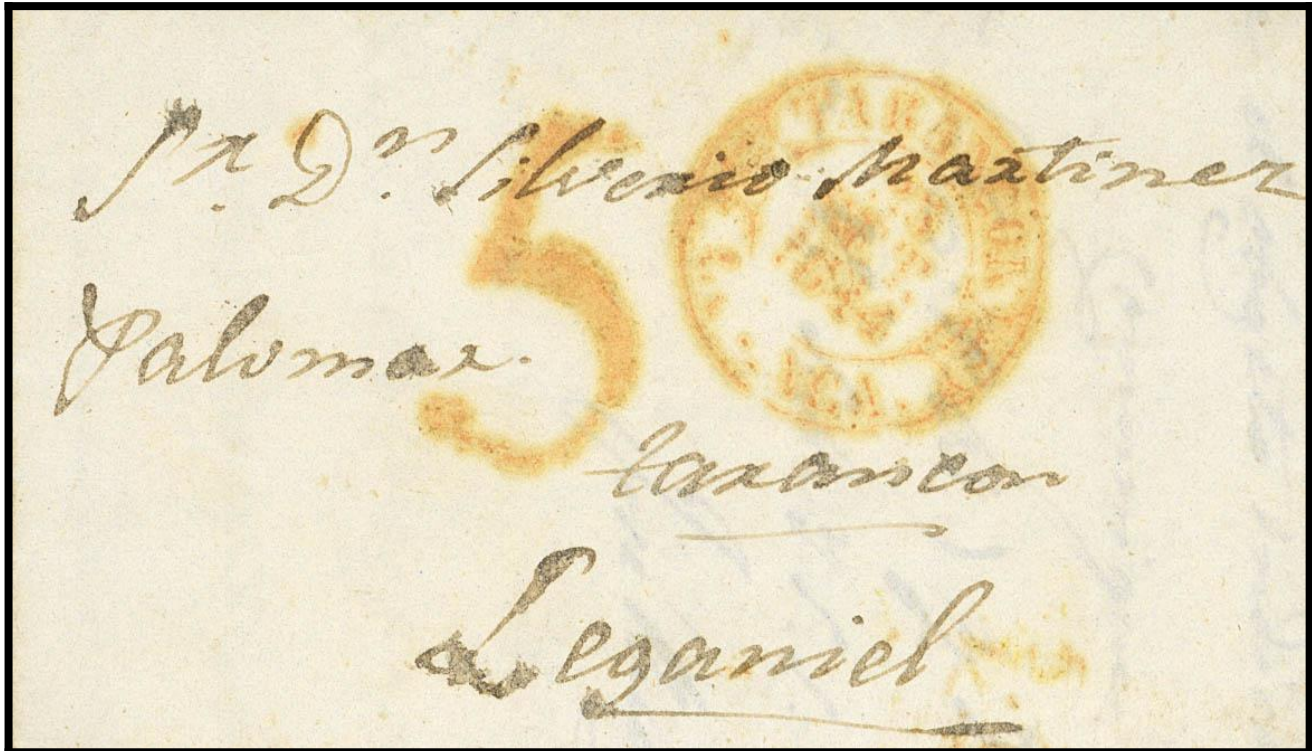 Sr. Dn. Silverio Martinez
Palomar.
5
tarancon
Leganiel